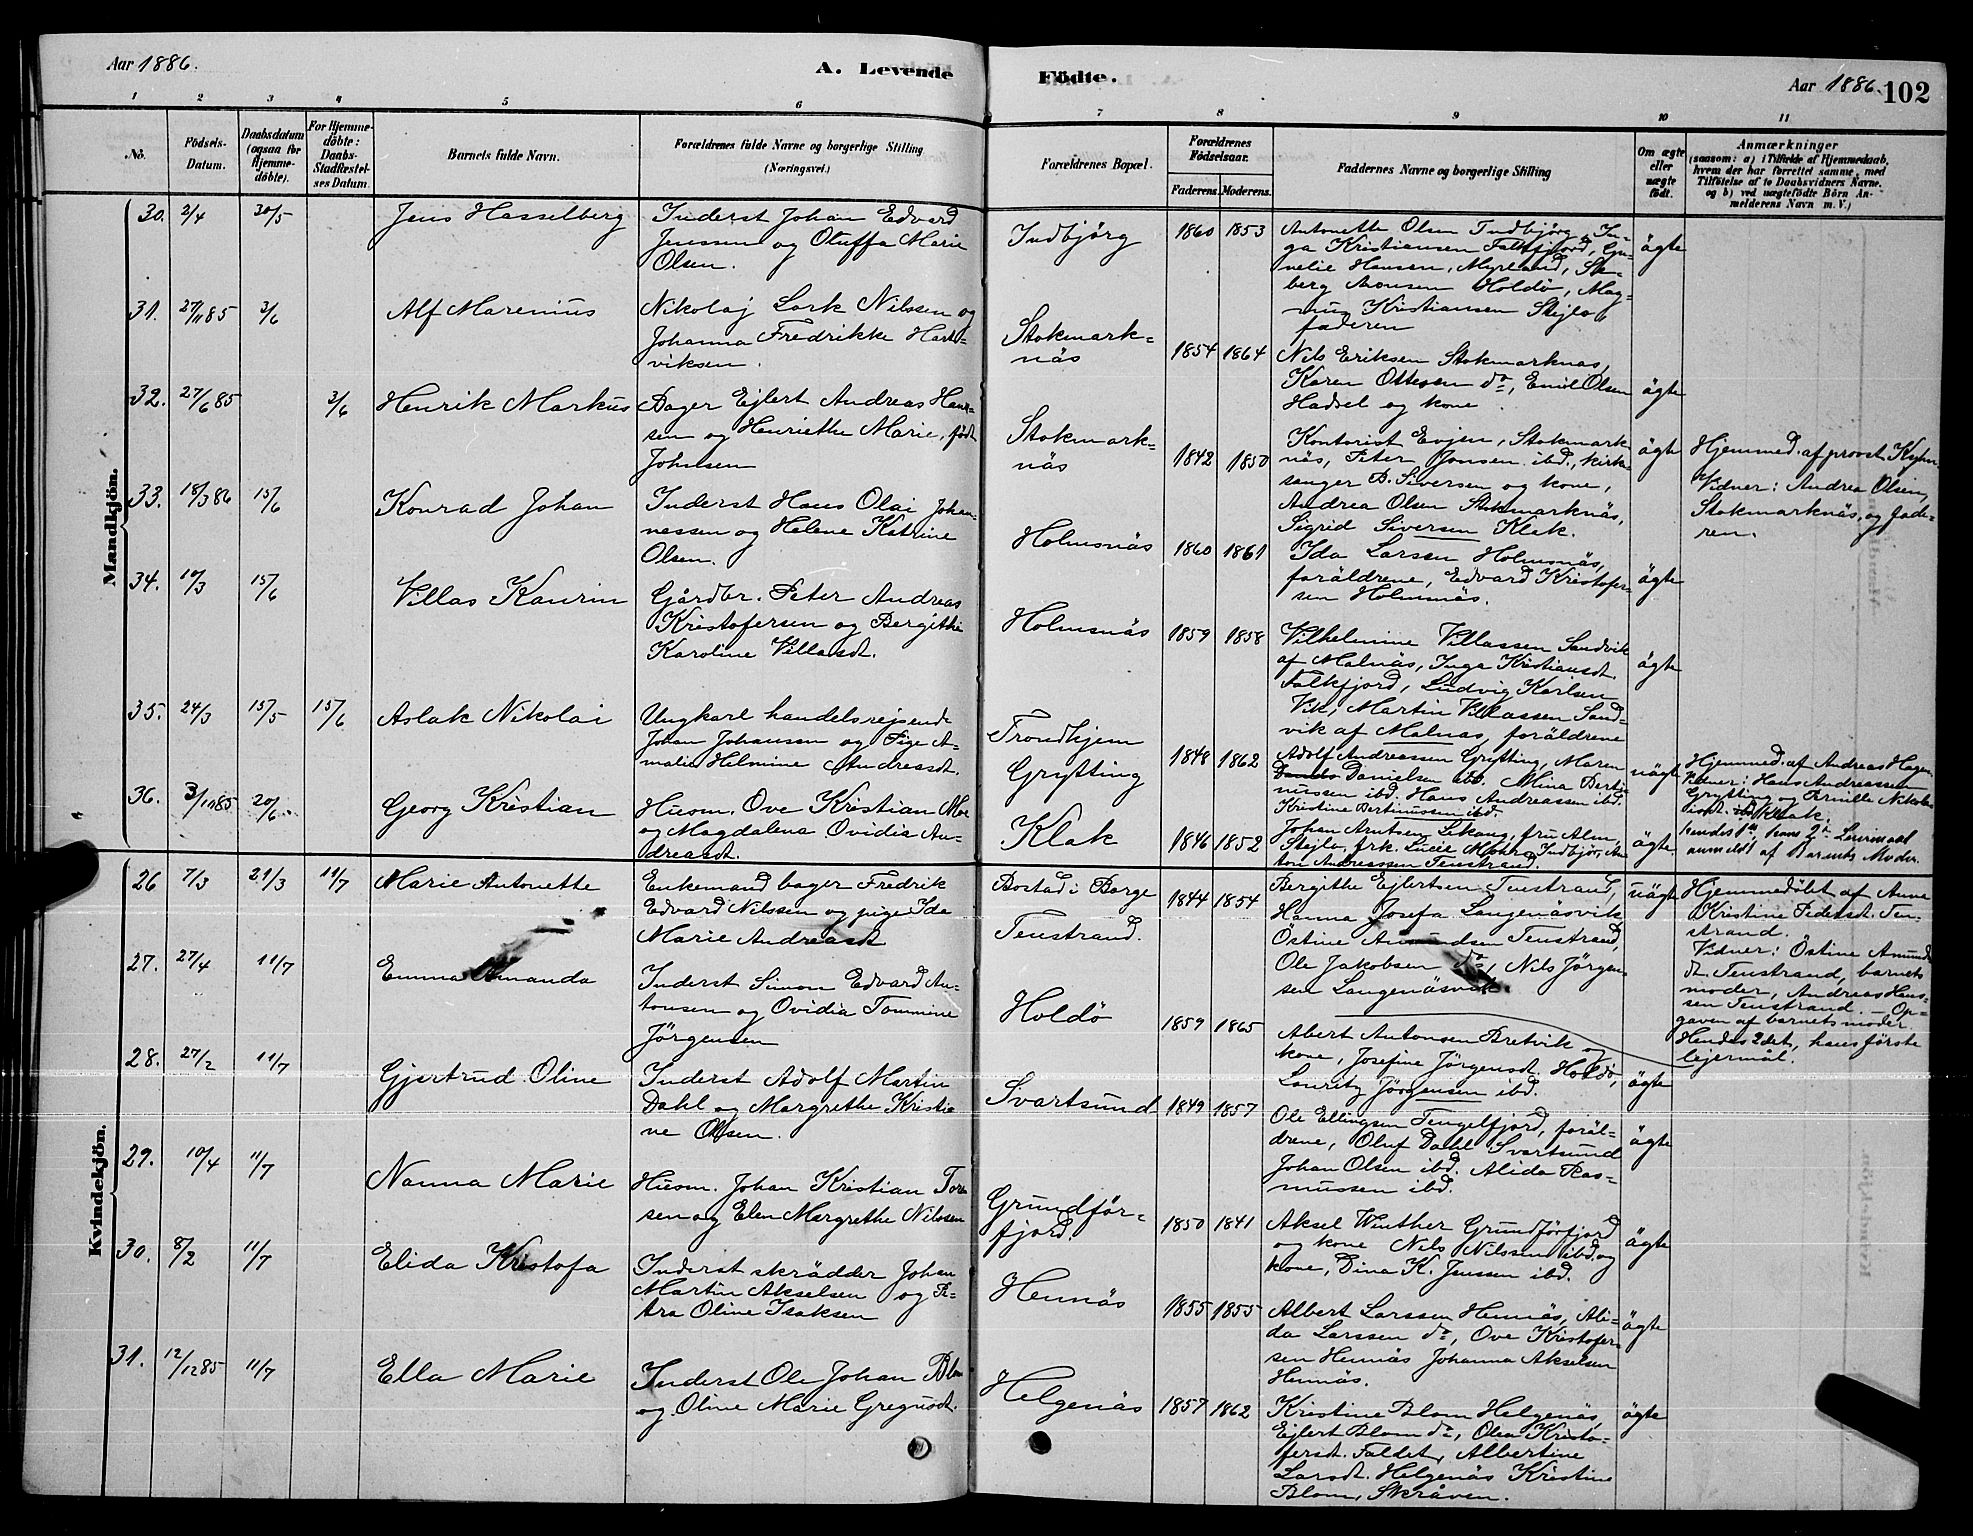 Aar 1886.
A. Levende
Födte.
Aar 1886.
102
1 2 3 4 5 6
7 8 9 10 11
No.
Födsels-
Datum.
Daabsdatum
(ogsaa for
Hjemme-
döbte).
For Hjemme-
döbte:
Daabs-
Stadfæstel-
ses Datum.
Barnets fulde Navn.
Forældrenes fulde Navne og borgerlige Stilling
(Næringsvei.)
Forældrenes Bopæl.
Forældrenes
Födselsaar.
Faderens.
Moderens.
Faddernes Navne og borgerlige Stilling
Om ægte
eller
uægte
födt.
Anmærkninger
(saasom: a) i Tilfælde af Hjemmedaab,
hvem der har forrettet samme, med
Tilföielse af to Daabsvidners Navne,
og b) ved uægtefödte Börn An-
melderens Navn m. V.)
Mandkjön.
30. 2/4 30/5
Jens Hasselberg
Inderst Johan Edvard
Jenssen og Oluffa Marie
Olsen.
Indbjörg
1860 1853
Antonette Olsen Indbjörg, In-
ga Kristiansen Falkfjord,
Hansen, Myrland,
berg Aronsen Holdö, Mag-
nus Kristiansen Stejlo,
faderen
ägte
31. 27/11 85 3/6
Alf Marenius
Nikolaj Lork Nilssen og
Johanna Fredrikke Hart-
viksen.
Stokmark-
näs
1854 1864
Nils Eriksen Stokmarknäs,
Karen Ottesen do, Emil Olsen
Hadsel og kone.
ägte
32. 27/6 85 3/6
Henrik Markus
Bager Ejlert Andreas Han-
sen og Henriethe Marie, født
Johnsen
Stokmark-
näs
1842 1850
Kontorist Evjen, Stokmark
näs, Peter Jonsen ibd., kirk-
sanger B. Siversen og kone,
Andrea Olsen Stokmarknäs,
Sigrid Siversen Klak.
ägte
Hjemmed. af provst
Vidner: Andrea Olsen,
Stokmarknäs, og fade-
ren.
33. 18/3 86 15/6
Konrad Johan
Inderst Hans Olai Johan-
nessen og Helene Katrine
Olsen.
Holmsnäs
1860 1861
Ida Larssen Holmsnäs,
foräldrene, Edvard Kristofer-
sen Holmsnäs.
ägte
34. 10/3 15/6
Villas Kaurin
Gårdbr. Peter Andreas
Kristofersen og Bergithe
Karoline Villasdt.
Holmsnäs
1859 1858
Vilhelmine Villassen Sandvik
af Malnäs, Inga Kristiansdt.
Falkfjord, Ludvig Karlsen
Vik, Martin Villassen Sand-
vik af Malnäs, foräldrene
ägte
35. 24/3 15/5 15/6
Aslak Nikolai
Ungkarl handelsrejsende
Johan Johansen og Pige A-
malie Helmine Andreasdt.
Trondhjem
Grytting
1848 1862
Adolf Andreassen Grytting, Maren
Danielsen ibd. Mina Berti-
nussen ibd. Hans Andreassen ibd.
Kristine Bertinussen ibd.
uägte
Hjemmed. af Andreas Hagen
Vidner: Hans Andreassen
Grytting og Pernille Nikolai
sdt. Klak.
hendes 1ste, hans 2det Leiermaal
anmeldt af Barnets Moder.
36. 3/11 85 20/6
Georg Kristian
Husm. Ove Kristian Moe
og Magdalena Ovidia An-
dreasdt.
Klak
1846 1852
Johan Arntsen Lekang, fru Alm
Stejlo, frk. Lucie Mohr, Indbjör, An-
ton Andreassen Tenstrand.
ägte.
Kvindekjön.
26 7/3 21/3 11/7
Marie Antonette
Enkemand bager Fredrik
Edvard Nilssen og pige Ida
Marie Andreasdt
Bostad i Borge
Tenstrand.
1844 1854
Bergithe Ejlertsen Tenstrand,
Hanna Josefa Langenäsvik
Östine Amundsen Tenstrand,
Ole Jakobsen do, Nils Jörgen
sen Langenäsvik
uägte
Hjemmedöbt af Anne
Kristine Pedersdt. Ten-
strand.
Vidner: Östine Amund-
dt. Tenstrand, barnets
moder, Andreas Hans-
sen Tenstrand. — Op-
gaven af barnets moder.
Hendes 2det, hans förste
lejermål.
27. 27/4 11/7
Emma Amanda
Inderst Simon Edvard An-
tonsen og Ovidia Tommine
Jörgensen
Holdö
1859 1865
Abert Antonsen Bretvik og
kone, Josefine Jörgensdt. Holdö,
Lauritz Jörgensen ibd.
ägte
28. 27/2 11/7
Gjertrud Oline
Inderst Adolf Martin
Dahl og Margrethe Kristi-
ne Olsen.
Svartsund
1849 1857
Ole Ellingsen Tengelfjord, foräl-
drene, Oluf Dahl Svartsund
Johan Olsen ibd. Alida Ras-
mussen ibd.
ägte
29. 10/4 11/7
Nanna Marie
Husm. Johan Kristian Tor-
sen og Elen Margrethe Nilssen
Grundför-
fjord.
1850 1841
Aksel Winther Grundförfjord
og kone Nils Nilssen ibd. og
kone, Dina K. Jenssen ibd.
ägte
30. 8/2 11/7
Elida Kristofa
Inderst skrädder Johan
Martin Akselsen og Pe-
tra Oline Isaksen
Hennäs
1855 1855
Albert Larssen Hennäs, Ali-
da Larssen do, Ove Kristofer-
sen Hennäs Johanna Akselsen
Hennäs.
ägte
31. 12/12 85 11/7
Ella Marie
Inderst Ole Johan Blom
og Oline Marie Gregusdt.
Helgenäs
1857 1862
Kristine Blom Helgenäs,
Ejlert Blom do, Olea Kristo-
fersdt. Faldet, Albertine
Larsdt. Helgenäs Kristine
Blom, Skråven.
ägte